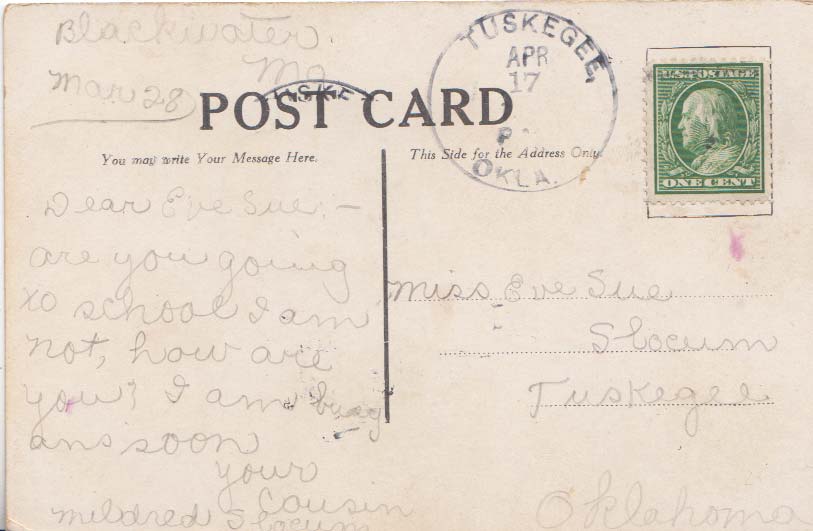 Blackwater
Mo
Mar 28
POST CARD
You may write Your Message Here.
This Side for the Address Only.
TUSKEGEE,
APR
17
P
OKLA.
USKE
U.S. POSTAGE
ONE CENT
Dear Eve Sue:-
are you going
to school I am
not, how are
you? I am busy
ans soon
your
cousin
mildred Slocum
Miss Eve Sue
Slocum
Tuskegee
Oklahoma